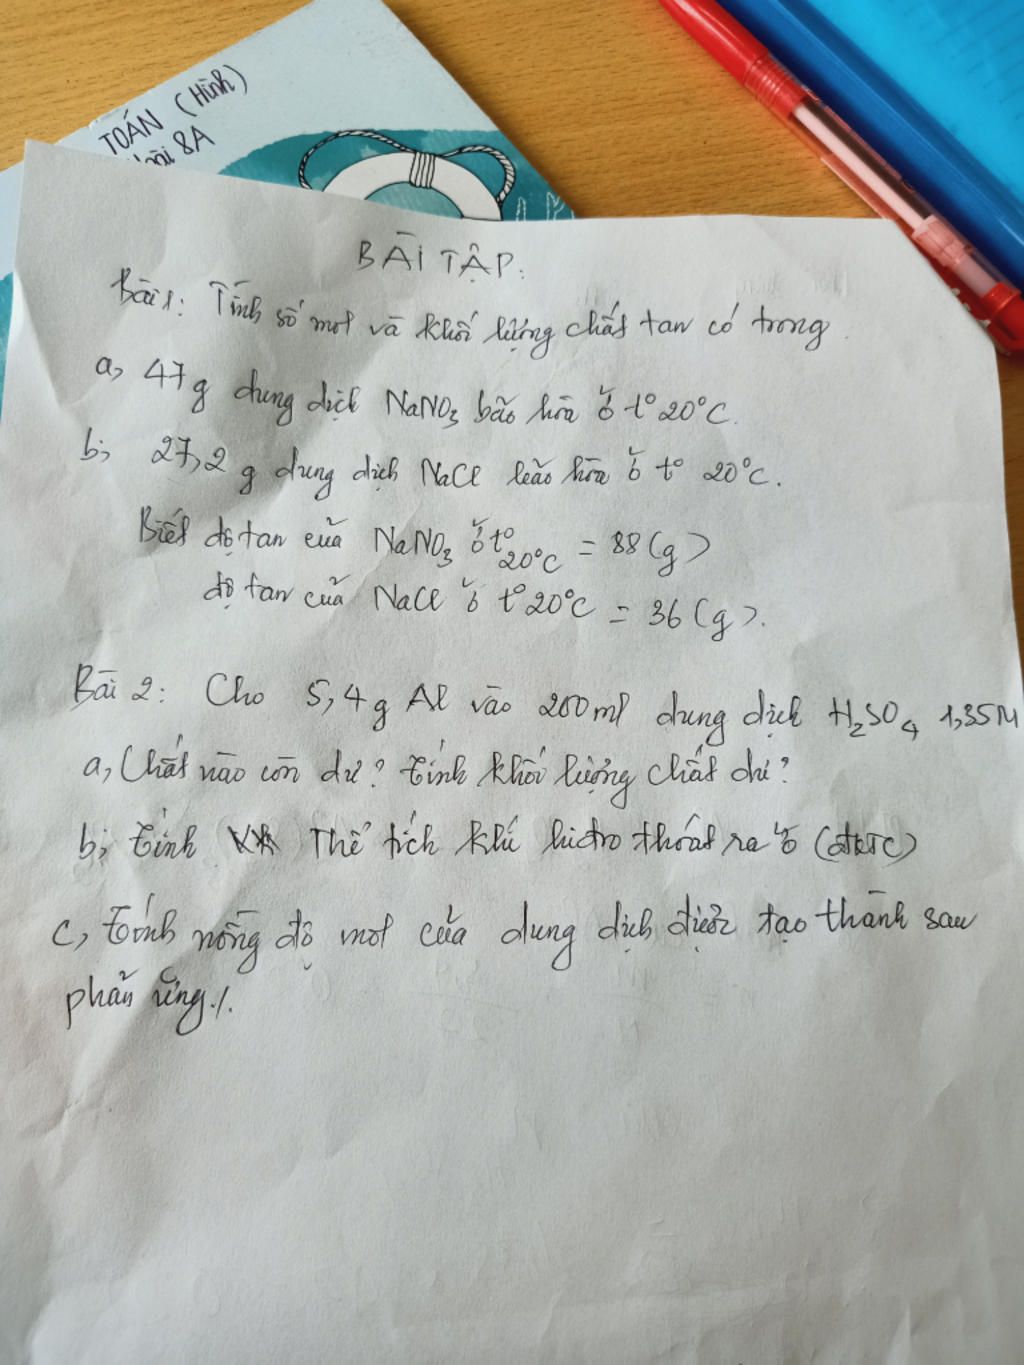 TOÁN (Hình)
8A
BÀI TẬP:
Bài 1: Tính số mol và khối lượng chất tan có trong
a, 47g dung dịch NaNO3 bão hòa ở t° 20°C.
b; 27,2 g dung dịch NaCl bão hòa ở t° 20°C.
Biết độ tan của NaNO3 ở t° 20°C = 88(g)
độ tan của NaCl ở t° 20°C = 36(g).
Bài 2: Cho 5,4g Al vào 200ml dung dịch H2SO4 1,35M
a, Chất nào còn dư? tính khối lượng chất dư?
b; tính Thể tích khí hidro thoát ra ở (đktc)
c, tính nồng độ mol của dung dịch được tạo thành sau
phản ứng./.